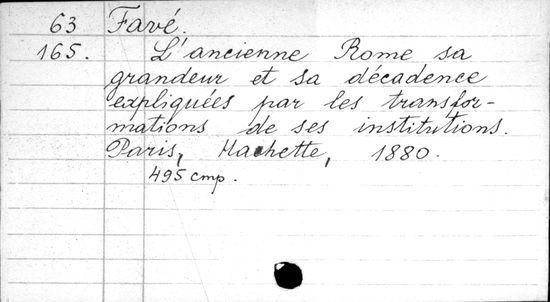 63 Favé.
165. L'ancienne Rome sa
grandeur et sa décadence
expliquées par les transfor-
mations de ses institutions.
Paris, Hachette, 1880.
495 cmp.